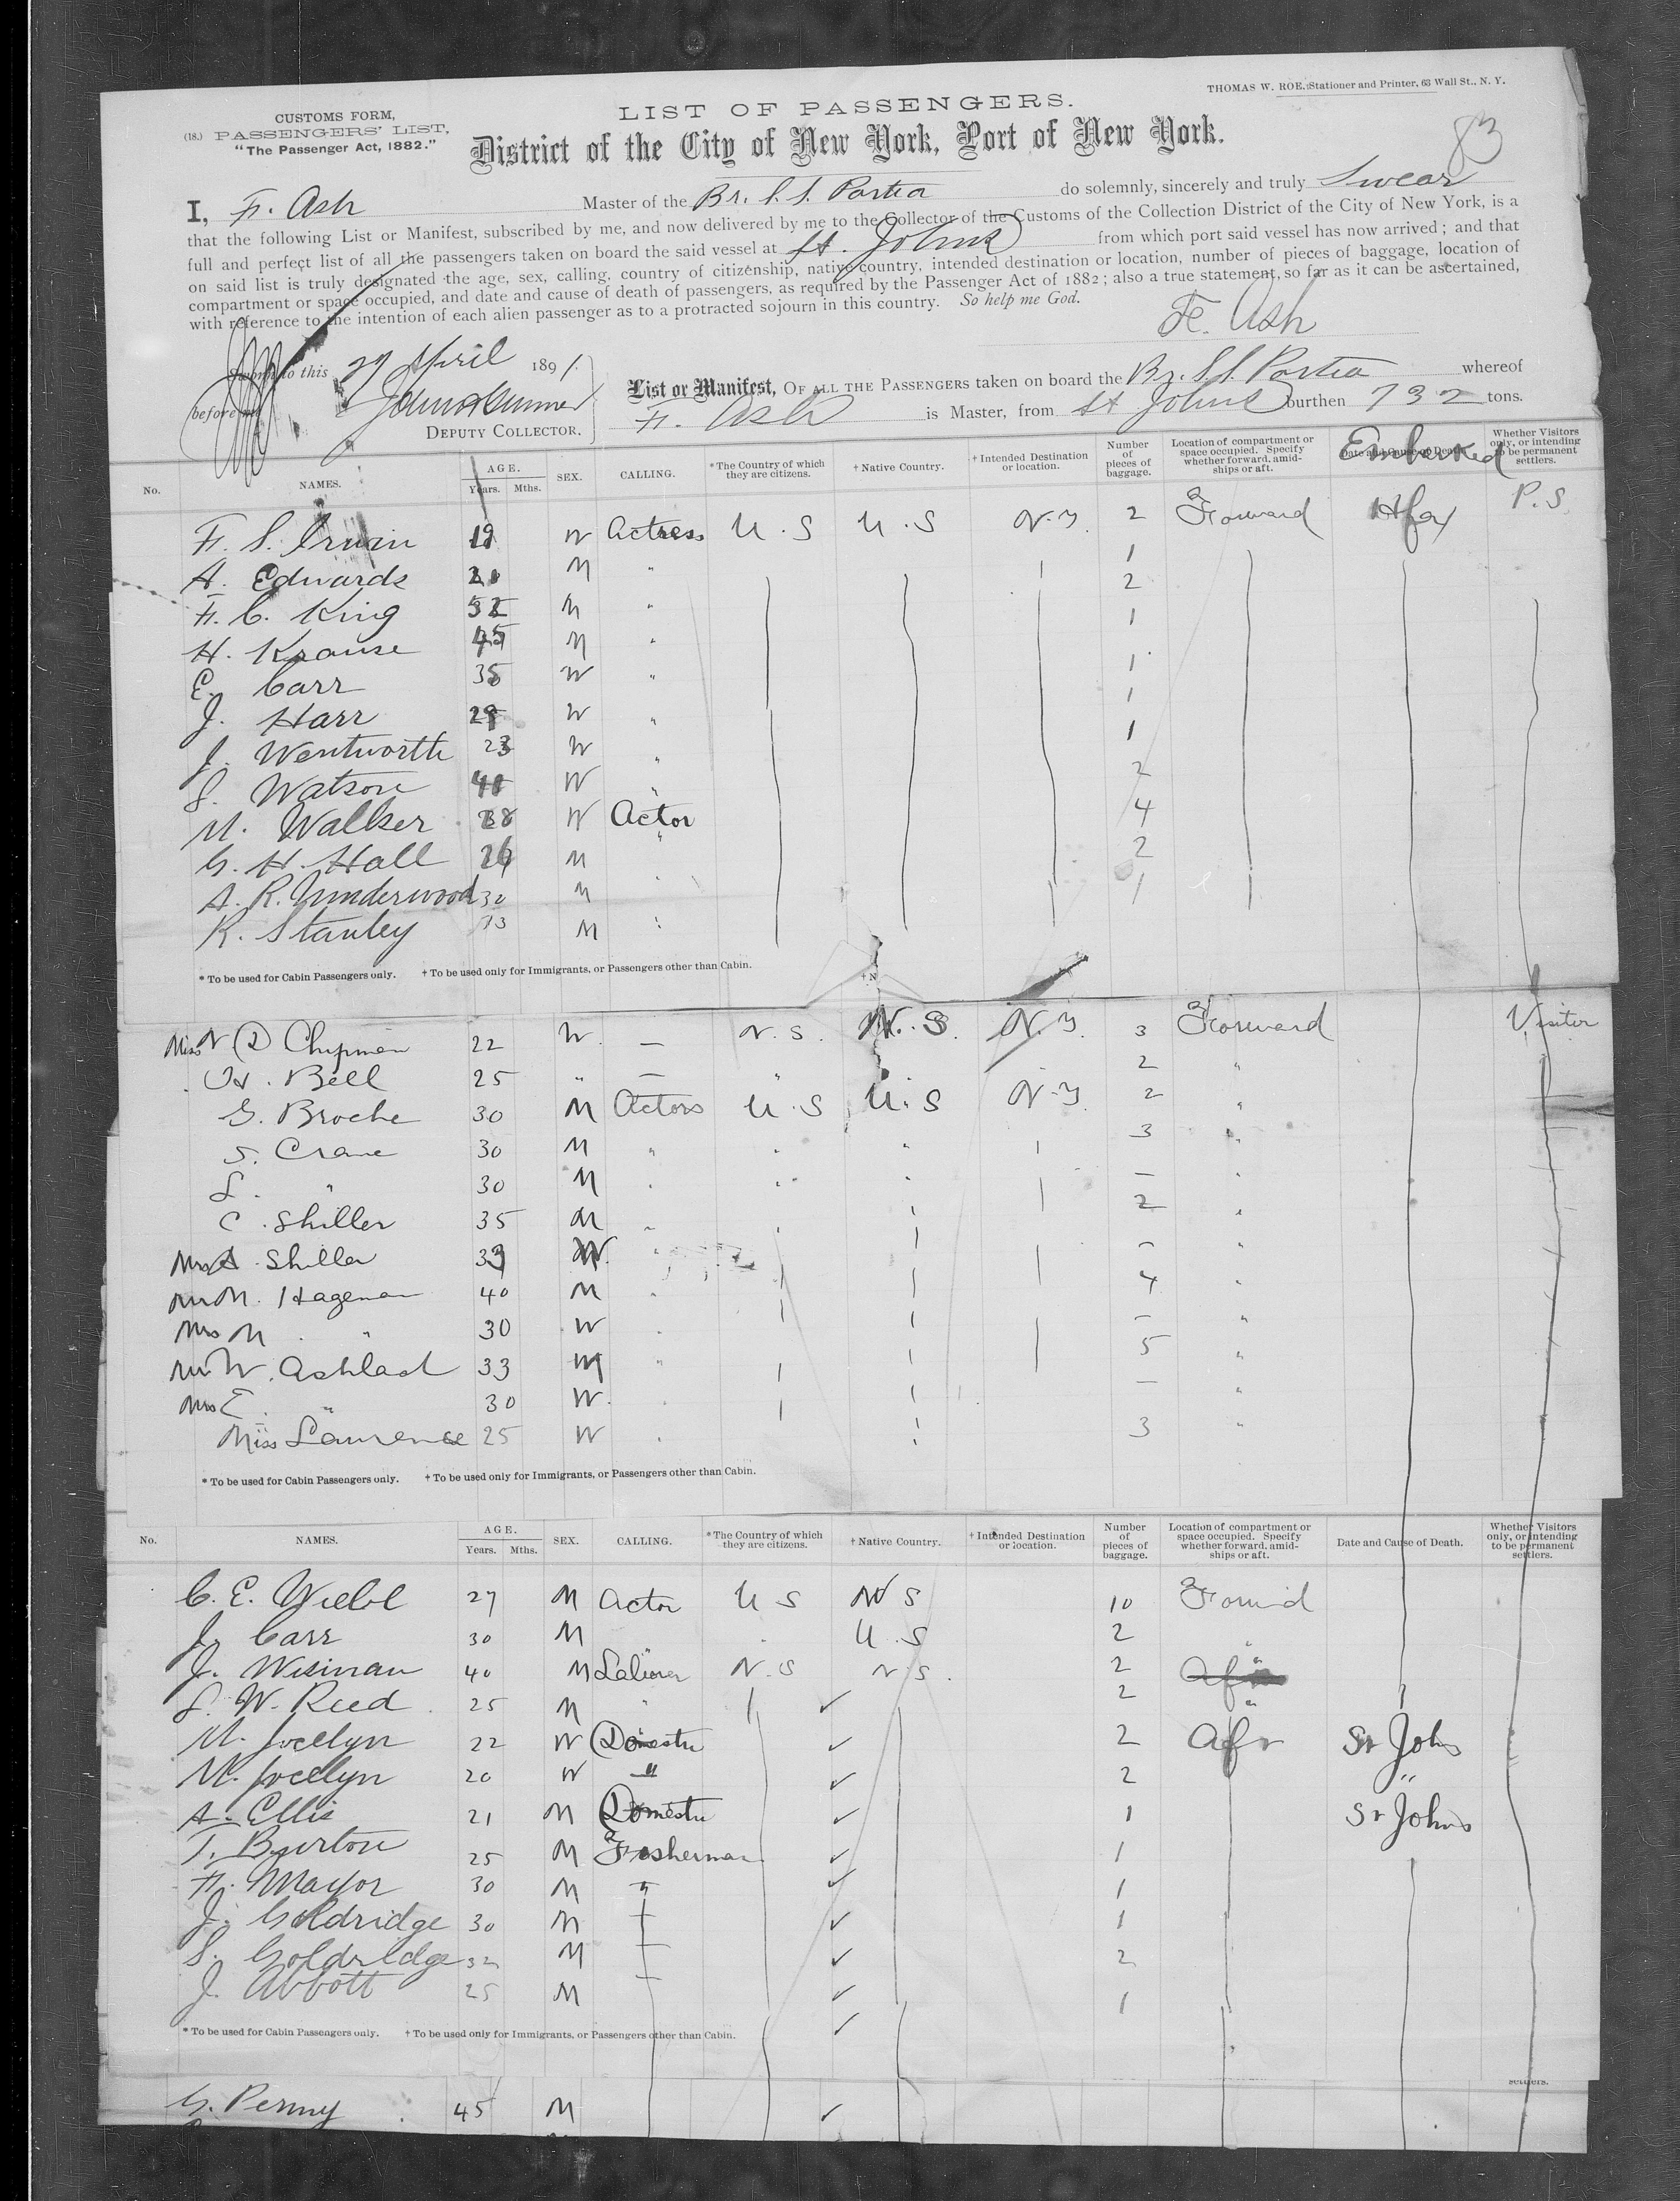 THOMAS W. ROE, Stationer and Printer, 63 Wall St., N. Y.
CUSTOMS FORM,
(18.) PASSENGERS' LIST,
"The Passenger Act, 1882."
LIST OF PASSENGERS.
83
District of the City of New York, Port of New York.
I, F. Ash Master of the Br. S.S. Portia do solemnly, sincerely and truly Swear
that the following List or Manifest, subscribed by me, and now delivered by me to the Collector of the Customs of the Collection District of the City of New York, is a
full and perfect list of all the passengers taken on board the said vessel at St. Johns from which port said vessel has now arrived; and that
on said list is truly designated the age, sex, calling, country of citizenship, native country, intended destination or location, number of pieces of baggage, location of
compartment or space occupied, and date and cause of death of passengers, as required by the Passenger Act of 1882; also a true statement, so far as it can be ascertained,
with reference to the intention of each alien passenger as to a protracted sojourn in this country. So help me God.
F. Ash
Sworn to this 29 April 1891.
before me
DEPUTY COLLECTOR.
List or Manifest, OF ALL THE PASSENGERS taken on board the Br. S.S. Portia whereof
F. Ash is Master, from St Johns burthen 732 tons.
No. NAMES. AGE. Years. Mths. SEX. CALLING. *The Country of which they are citizens. †Native Country. †Intended Destination or location. Number of pieces of baggage. Location of compartment or space occupied. Specify whether forward, amidships or aft. Date and Cause of Death. Embarked Whether Visitors only, or intending to be permanent settlers.
F. S. Irwin 19 W Actress U.S U.S N.Y. 2 Forward Hfax P.S.
A. Edwards M " 1
F. C. King M " 2
H. Krause 45 M " 1
E. Carr 35 W " 1
J. Harr W " 1
J. Wentworth 23 W " 1
S. Watson W " 2
M. Walker W Actor 4
G. H. Hall 26 M " 2
A. R. Underwood 30 M " 1
R. Stanley M "
* To be used for Cabin Passengers only. † To be used only for Immigrants, or Passengers other than Cabin.
Miss N D Chipman 22 W. — N.S. N.S. N.Y. 3 Forward Visitor
H. Bell 25 " — " 2 "
G. Broche 30 M Actors U.S U.S N.Y. 2 "
S. Crane 30 M " " " 3 "
L. " 30 M " " " — "
C. Shiller 35 M " " 2 "
Mrs A. Shiller 33 W. " — "
Mr M. Hageman 40 M " 4 "
Mrs M. " 30 W " — "
Mr W. Ashlad 33 M " 5 "
Mrs E. " 30 W. " — "
Miss Laurence 25 W " 3 "
* To be used for Cabin Passengers only. † To be used only for Immigrants, or Passengers other than Cabin.
No. NAMES. AGE. Years. Mths. SEX. CALLING. *The Country of which they are citizens. †Native Country. †Intended Destination or location. Number of pieces of baggage. Location of compartment or space occupied. Specify whether forward, amidships or aft. Date and Cause of Death. Whether Visitors only, or intending to be permanent settlers.
C. E. Webb 27 M Actor U S N S 10
J. Carr 30 M " U.S 2 "
J. Wisinan 40 M N.S N.S. 2
S. W. Reed 25 M " 2 "
M. Jocelyn 22 W 2 Aft St Johns
M. Jocelyn 20 W " 2 "
A. Ellis 21 M 1 St Johns
T. Burton 25 M Fisherman 1
F. Mayor 30 M " 1
J. Goldridge 30 M 1
S. Goldridge 32 M 2
J. Abbott 25 M 1
* To be used for Cabin Passengers only. † To be used only for Immigrants, or Passengers other than Cabin.
settlers.
G. Penny 45 M